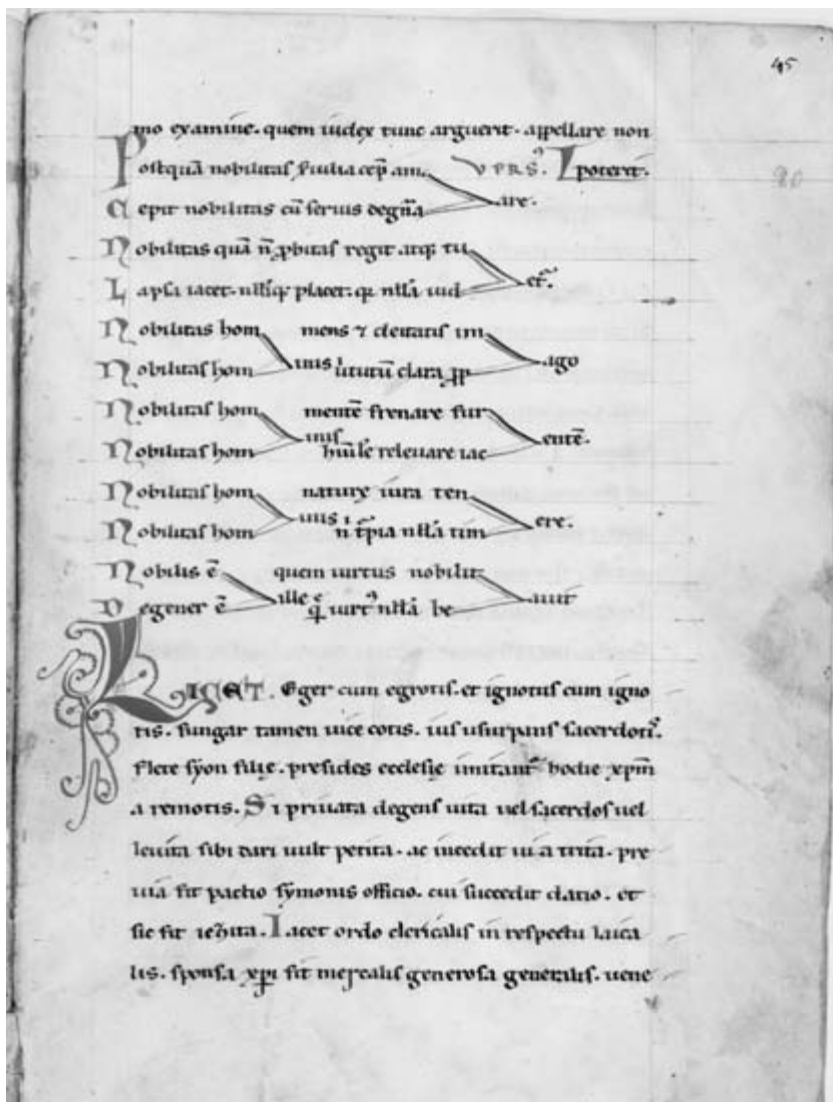 45
mo examine. quem iudex tunc arguerit. appellare non
Postquā nobilitas ẜuilia cep̄ am. VPRS᾽. poterit.
are.
Cepit nobilitas cū seruis degn̄a
80
Nobilitas quā n̄ ꝓbitas regit atqꝫ tu
et᷑.
Lapsa iacet. nulliqꝫ placet. qꝛ nłła uid
Nobilitas hom mens ⁊ deitatis im
inis ago
Nobilitas hom uirtutū clara ꝓp
Nobilitas hom mentē frenare fur
inis entē.
Nobilitas hom humilē releuare iac
Nobilitas hom naturę iura ten
inis ere.
Nobilitas hom n̄ t̄pia nłła tim
Nobilis ē quem uirtus nobilit
ille auit
Degener ē q̄ uirt᾽ nłła be
LICET. Eger cum egrotis. et ignotus cum igno
tis. fungar tamen uice cotis. ius usurpans sacerdot᷑.
flete syon filię. presides ecclesie imitant᷑ hodie xp̄m
a remotis. Si priuata degens uita uel sacerdos uel
leuita sibi dari uult petita. ac incedit uia trita. pre
uia fit pactio symonis officio. cui succedit datio. et
sic fit iezita. Iacet ordo clericalis in respectu laica
lis. sponsa xp̄i fit mercalis generosa generalis. uene